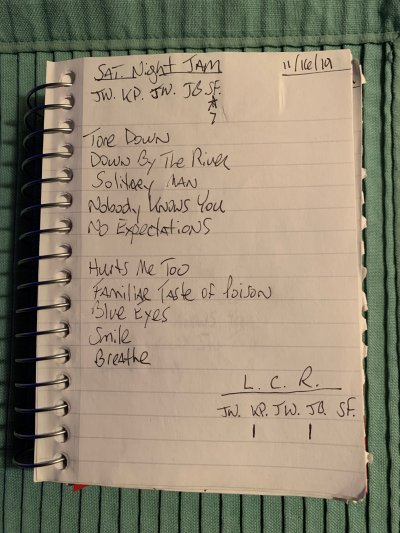 SAT. Night JAM 11/16/19
JW. KP. JW. JB SF.
Tore Down
Down By The River
Solitary Man
Nobody Knows You
No Expectations
Hurts Me Too
Familiar Taste of Poison
Blue Eyes
Smile
Breathe
L. C. R.
JW. KP. JW. JB. SF.
| |